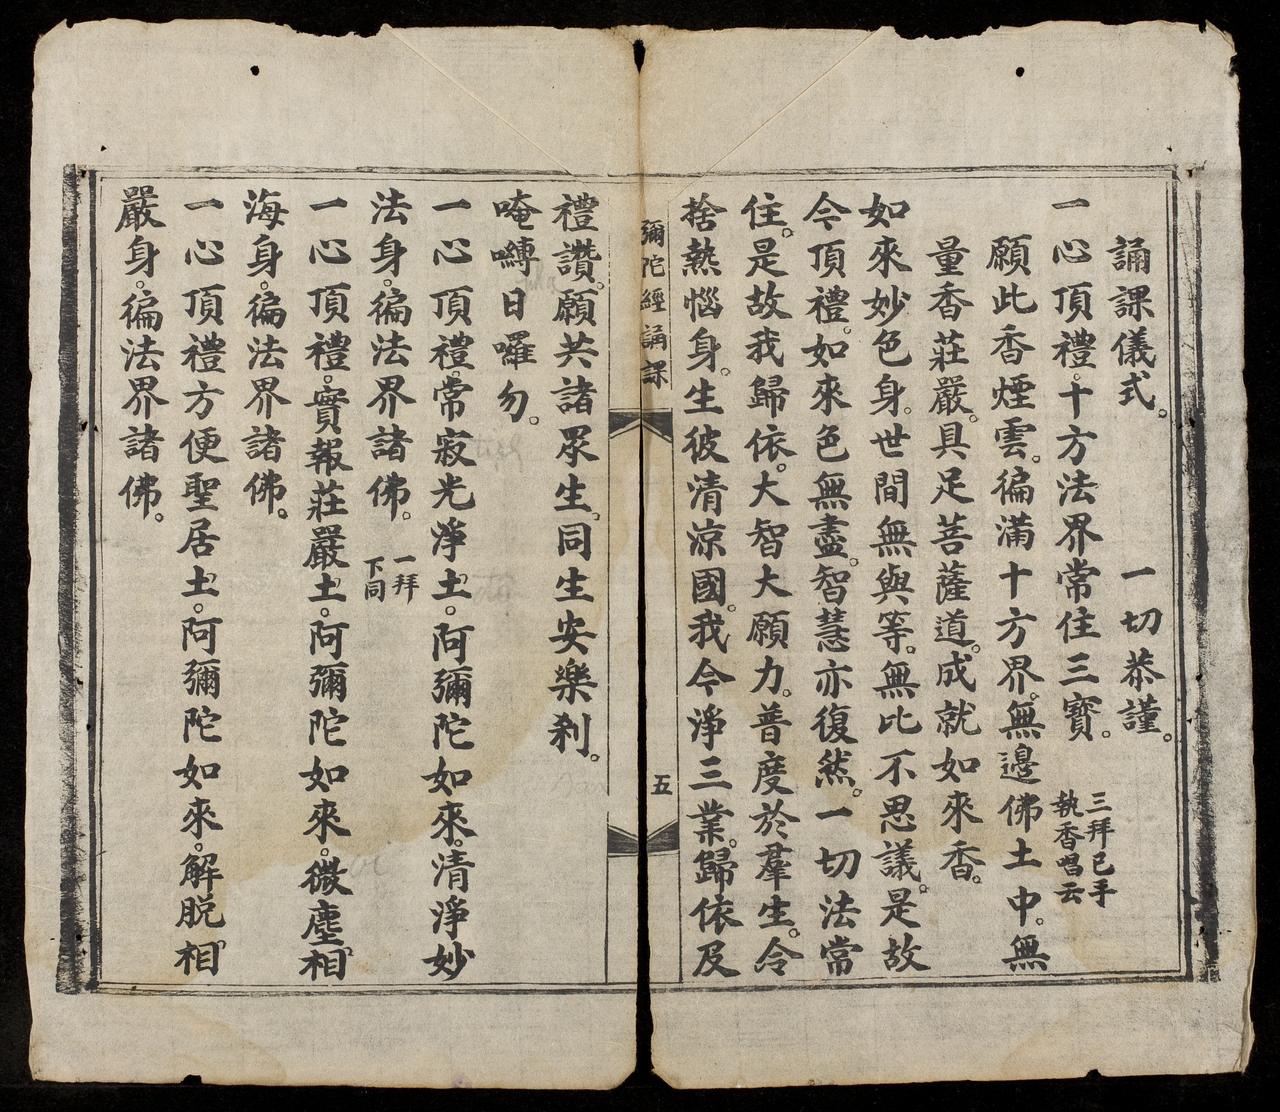 誦課儀式。 一切恭謹。
一心頂禮。十方法界常住三寶。 三拜已手執香唱云
願此香煙雲。徧滿十方界。無邊佛土中。無
量香莊嚴。具足菩薩道。成就如來香。
如來妙色身。世間無與等。無比不思議。是故
今頂禮。如來色無盡。智慧亦復然。一切法常
住。是故我歸依。大智大願力。普度於羣生。令
捨熱惱身。生彼清涼國。我今淨三業。歸依及
彌陀經誦課 五
禮讚。願共諸眾生。同生安樂刹。
唵嚩日囉勿。
一心頂禮。常寂光淨土。阿彌陀如來。清淨妙
法身。徧法界諸佛。 一拜下同
一心頂禮。實報莊嚴土。阿彌陀如來。微塵相
海身。徧法界諸佛。
一心頂禮方便聖居土。阿彌陀如來。解脱相
嚴身。徧法界諸佛。